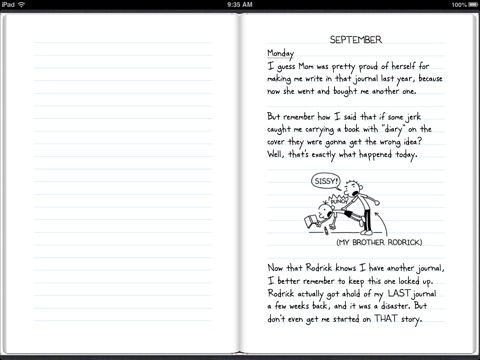 iPad
9:35 AM
100%
SEPTEMBER
Monday
I guess Mom was pretty proud of herself for
making me write in that journal last year, because
now she went and bought me another one.
But remember how I said that if some jerk
caught me carrying a book with "diary" on the
cover they were gonna get the wrong idea?
Well, that's exactly what happened today.
SISSY!
PUNCH
(MY BROTHER RODRICK)
Now that Rodrick knows I have another journal,
I better remember to keep this one locked up.
Rodrick actually got ahold of my LAST journal
a few weeks back, and it was a disaster. But
don't even get me started on THAT story.